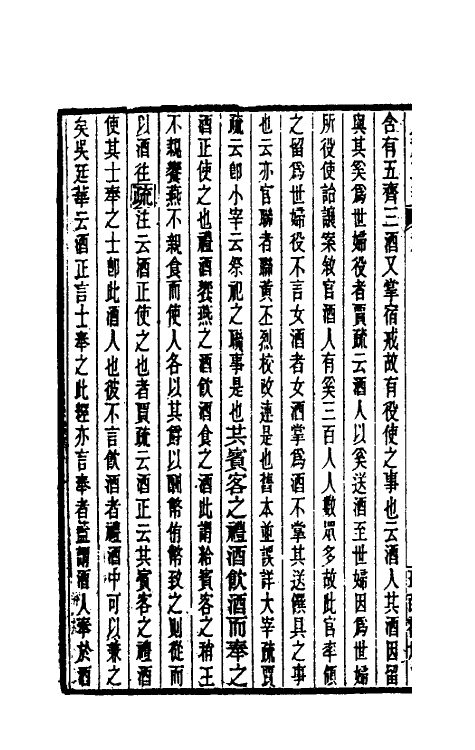 含有五齊三酒又掌宿戒故有役使之事也云酒人共酒因留
與其奚爲世婦役者賈疏云酒人以奚送酒至世婦因爲世婦
所役使詒讓案敘官酒人有奚三百人人數眾多故此官率領
之留爲世婦役不言女酒者女酒掌爲酒不掌其送饌具之事
也云亦官聯者聯黄丕烈校改連是也舊本並誤詳大宰疏賈
疏云卽小宰云祭祀之聯事是也共賓客之禮酒飮酒而奉之
酒正使之也禮酒饗燕之酒飮酒食之酒此謂給賓客之稍王
不親饗燕不親食而使人各以其爵以酬幣侑幣致之則從而
以酒往疏注云酒正使之也者賈疏云酒正云共賓客之禮酒
使其士奉之士卽此酒人也彼不言飮酒者禮酒中可以兼之
矣吳廷華云酒正言士奉之此經亦言奉者蓋謂酒人奉於酒